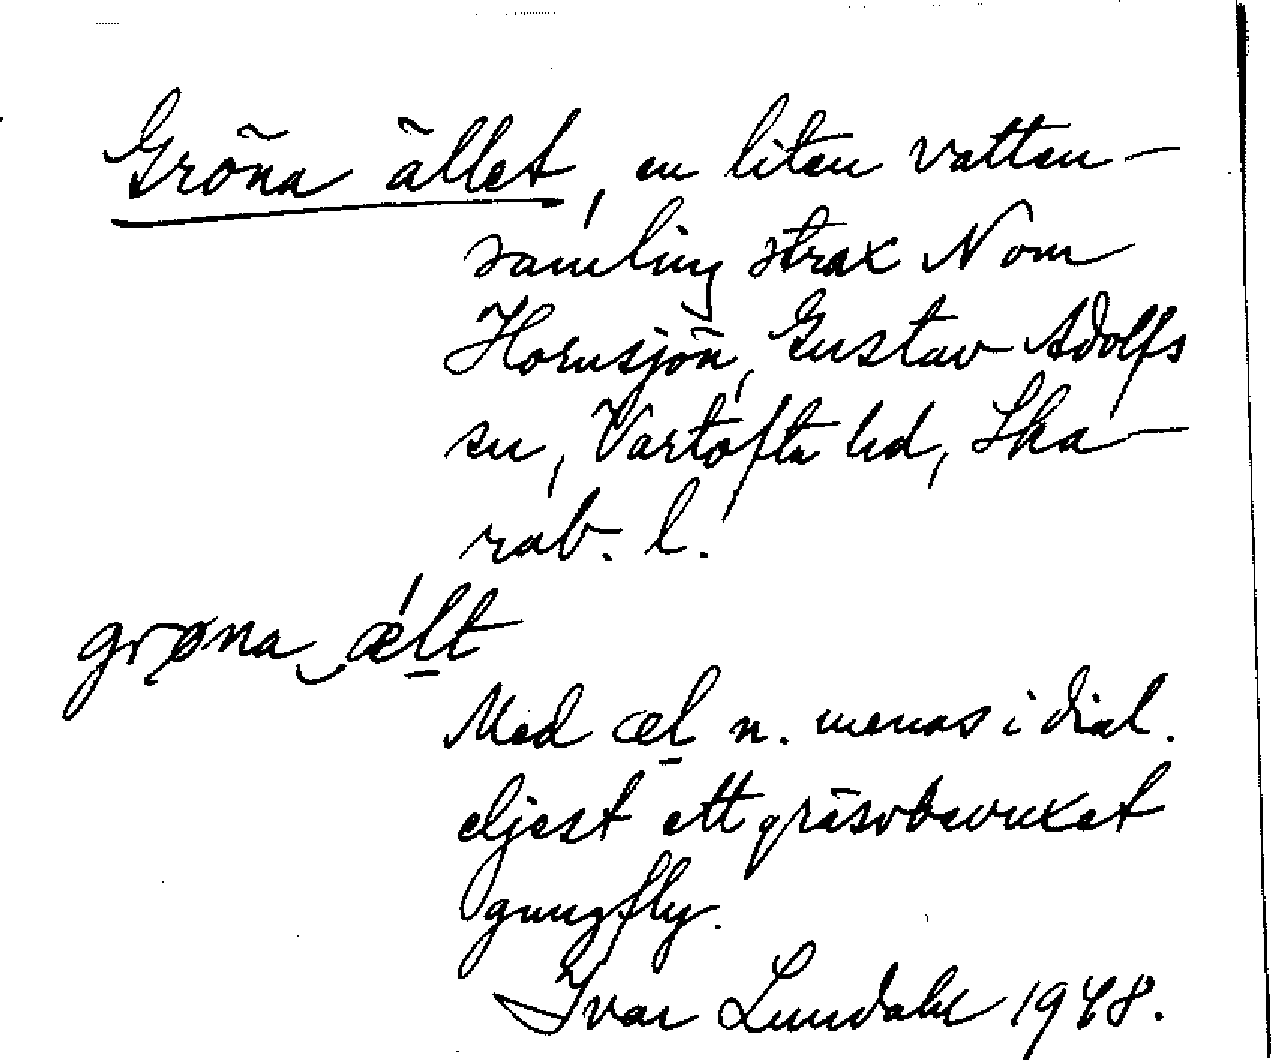 Gröna ället, en liten vatten-
samling strax N om
Hornsjön, Gustav Adolfs
sn, Vartofta hd, Ska-
rab. l.
grøna ælt
Med æl n. menas i dial.
eljest ett gräsbevuxet
gungfly.
Ivar Lundahl 1948.